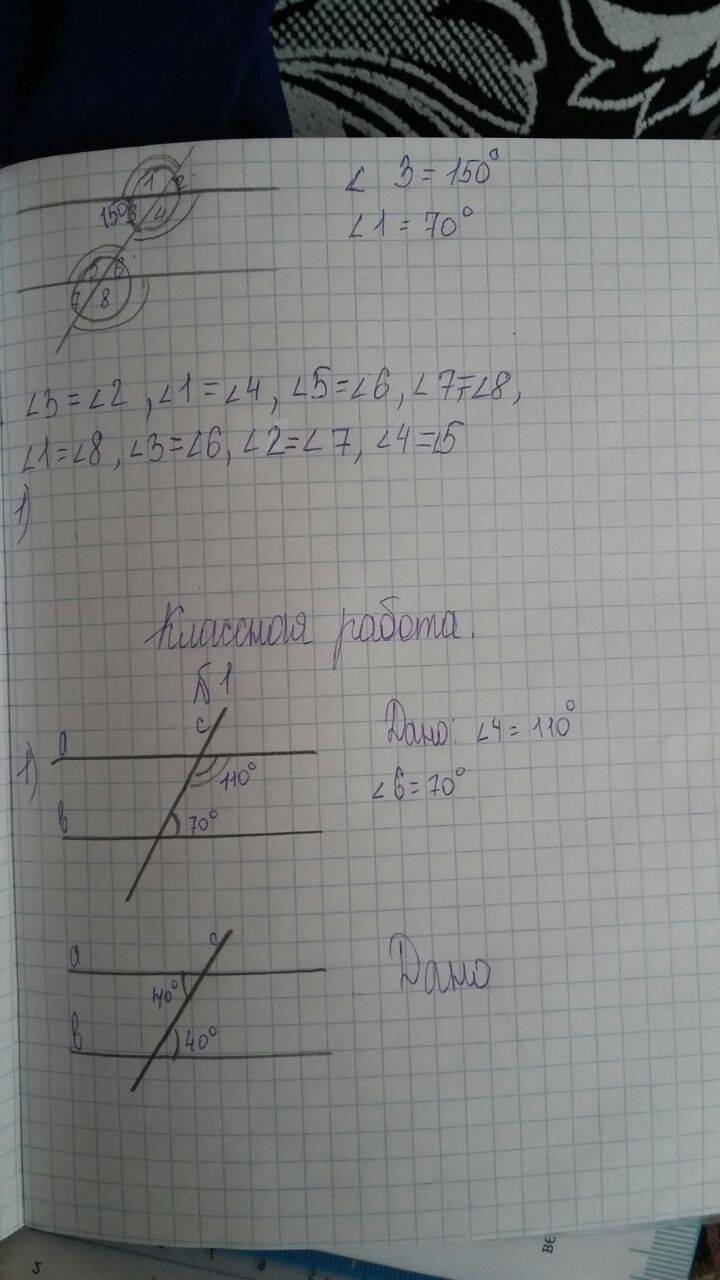 1 2
150° 3 4
∠ 3 = 150°
∠1 = 70°
5 6
7 8
∠3=∠2, ∠1=∠4, ∠5=∠6, ∠7=∠8,
∠1=∠8, ∠3=∠6, ∠2=∠7, ∠4=∠5
1)
Классная работа.
№1
1)
c
a
110°
b
70°
Дано: ∠4 = 110°
∠6=70°
c
a
40°
b
40°
Дано